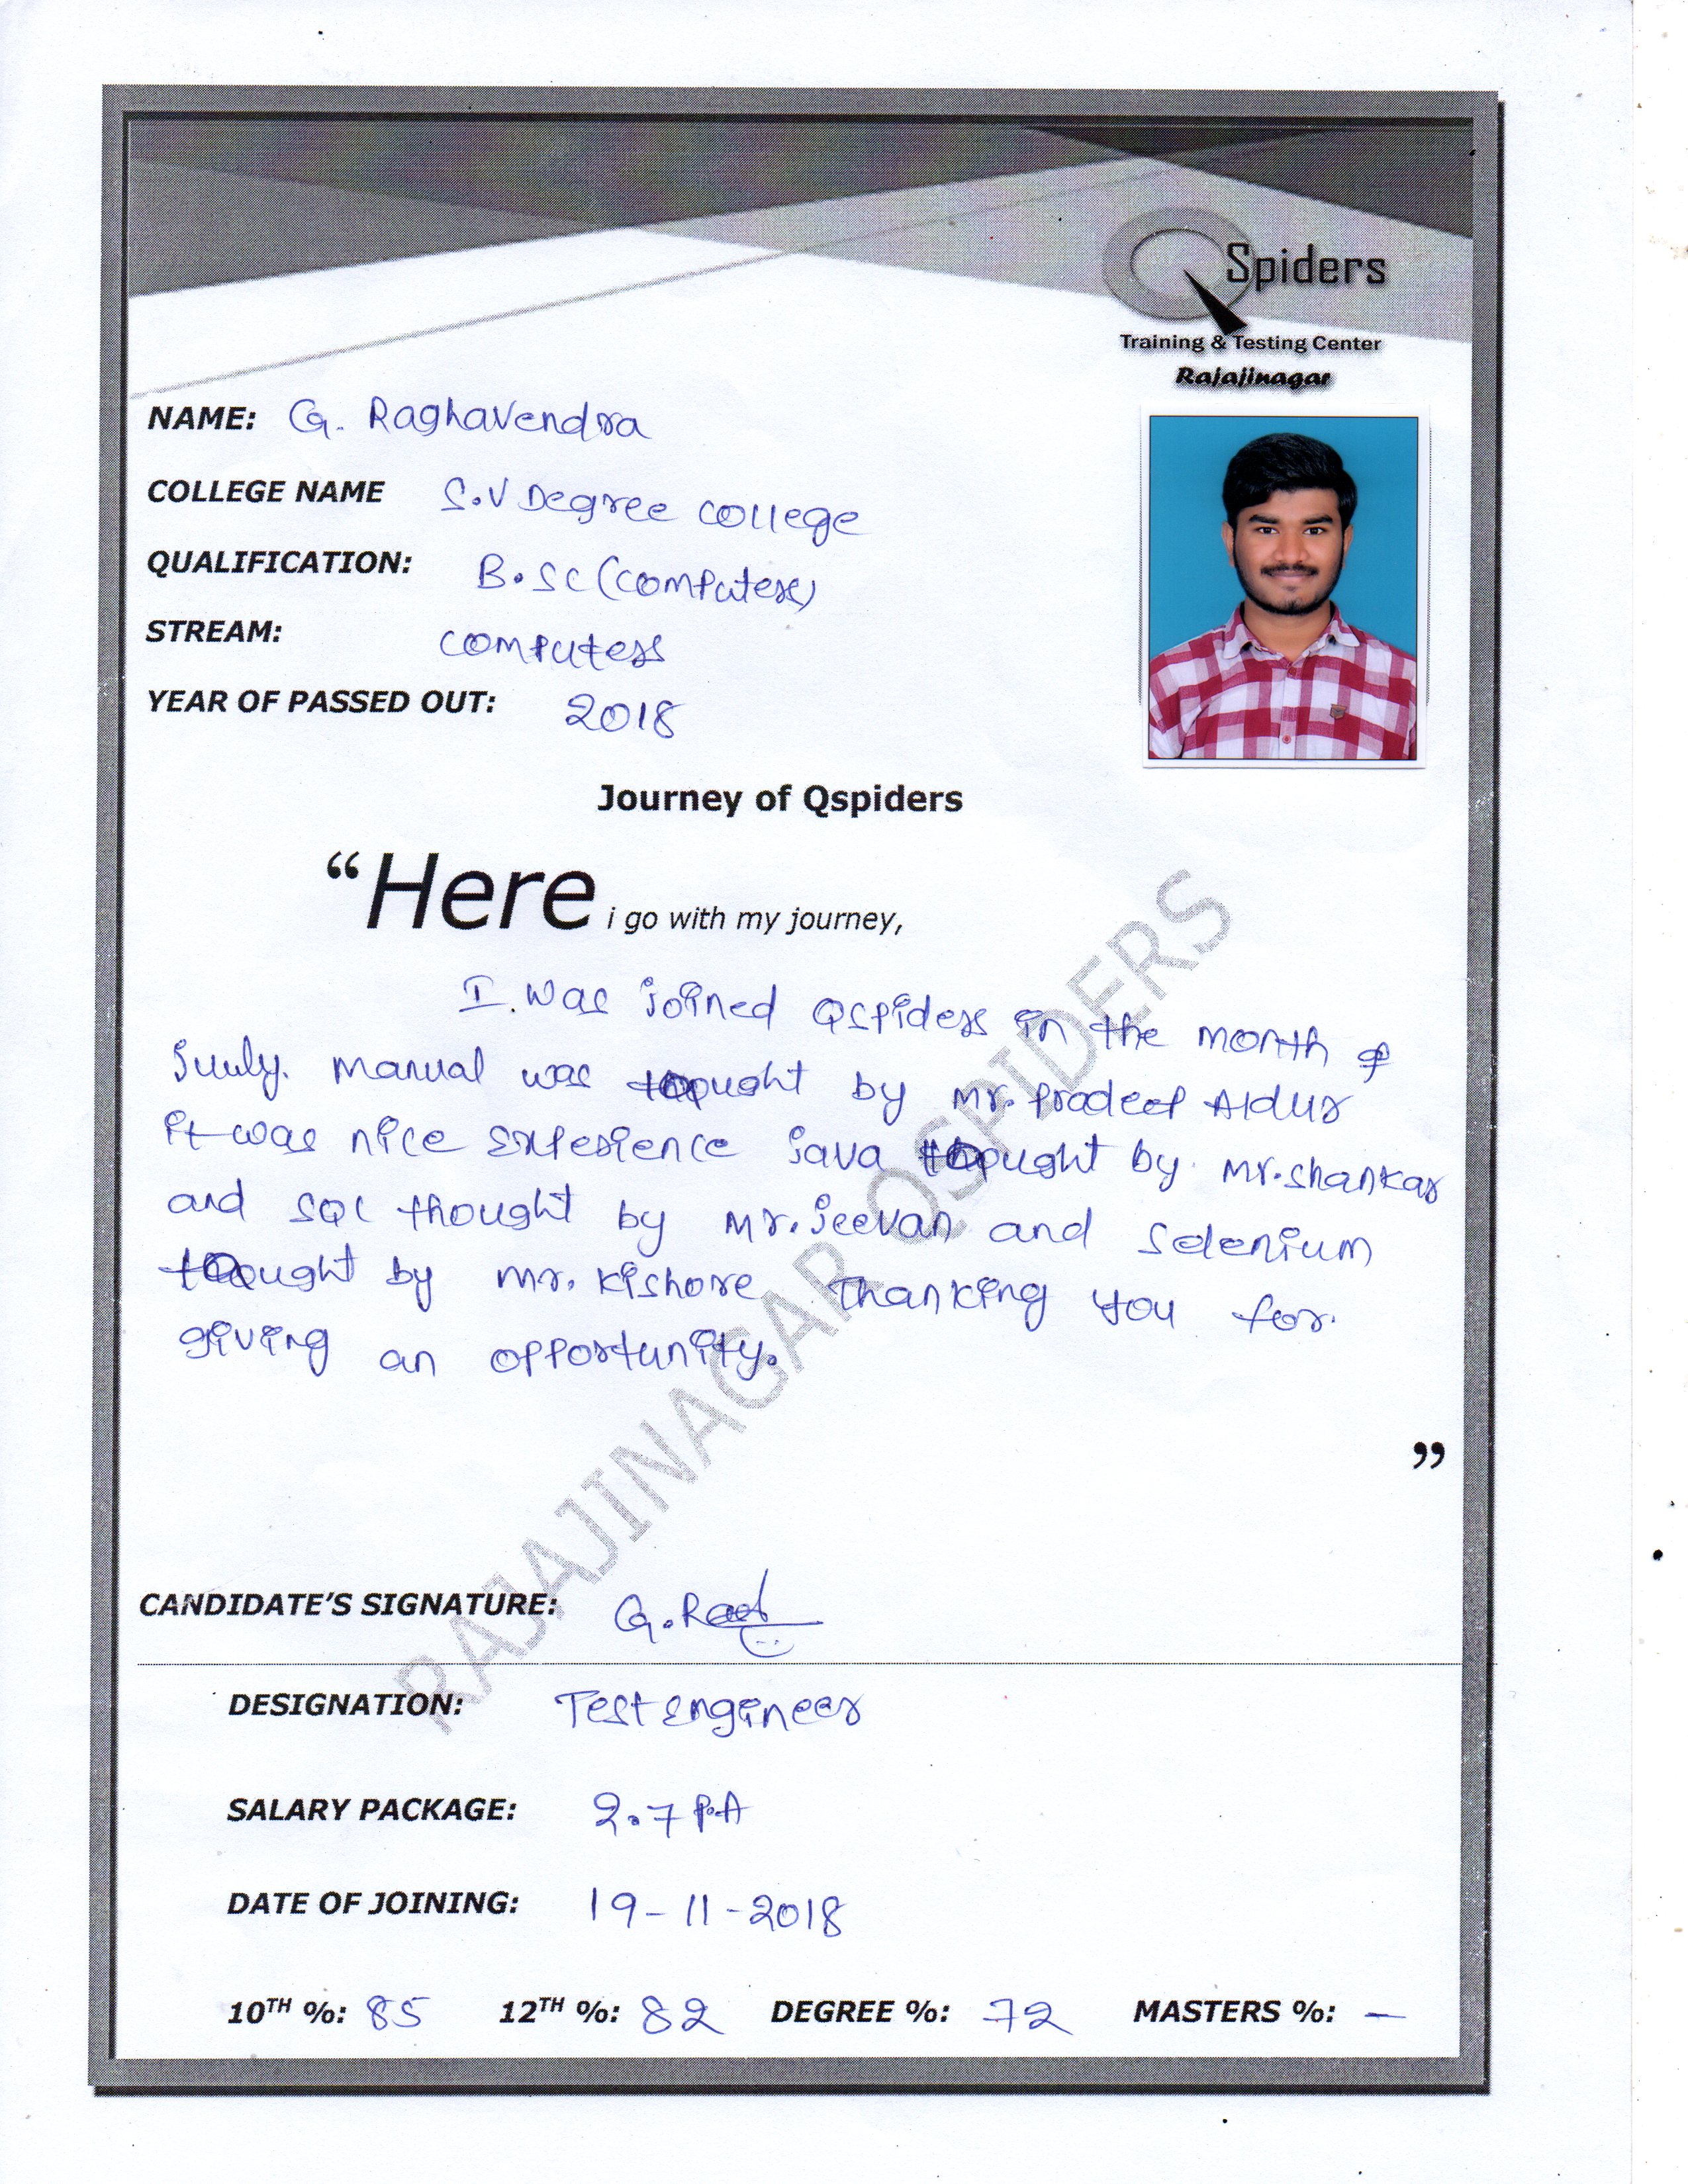 Spiders
Training & Testing Center
Rajajinagar
NAME: G. Raghavendra
COLLEGE NAME S.V Degree college
QUALIFICATION: B.SC (computers)
STREAM: computers
YEAR OF PASSED OUT: 2018
Journey of Qspiders
“Here i go with my journey,
I. was joined Qspiders in the month of
Juuly. manual was thought by Mr. Pradeep Aldur
it was nice experience java thought by Mr. shankar
and SQL thought by Mr. jeevan and Selenium
thought by Mr. Kishore Thanking you for.
giving an opportunity.
”
RAJAJINAGAR QSPIDERS
CANDIDATE’S SIGNATURE: G.
DESIGNATION: Test engineer
SALARY PACKAGE: 2.7 P.A
DATE OF JOINING: 19-11-2018
10TH %: 85 12TH %: 82 DEGREE %: 72 MASTERS %: —